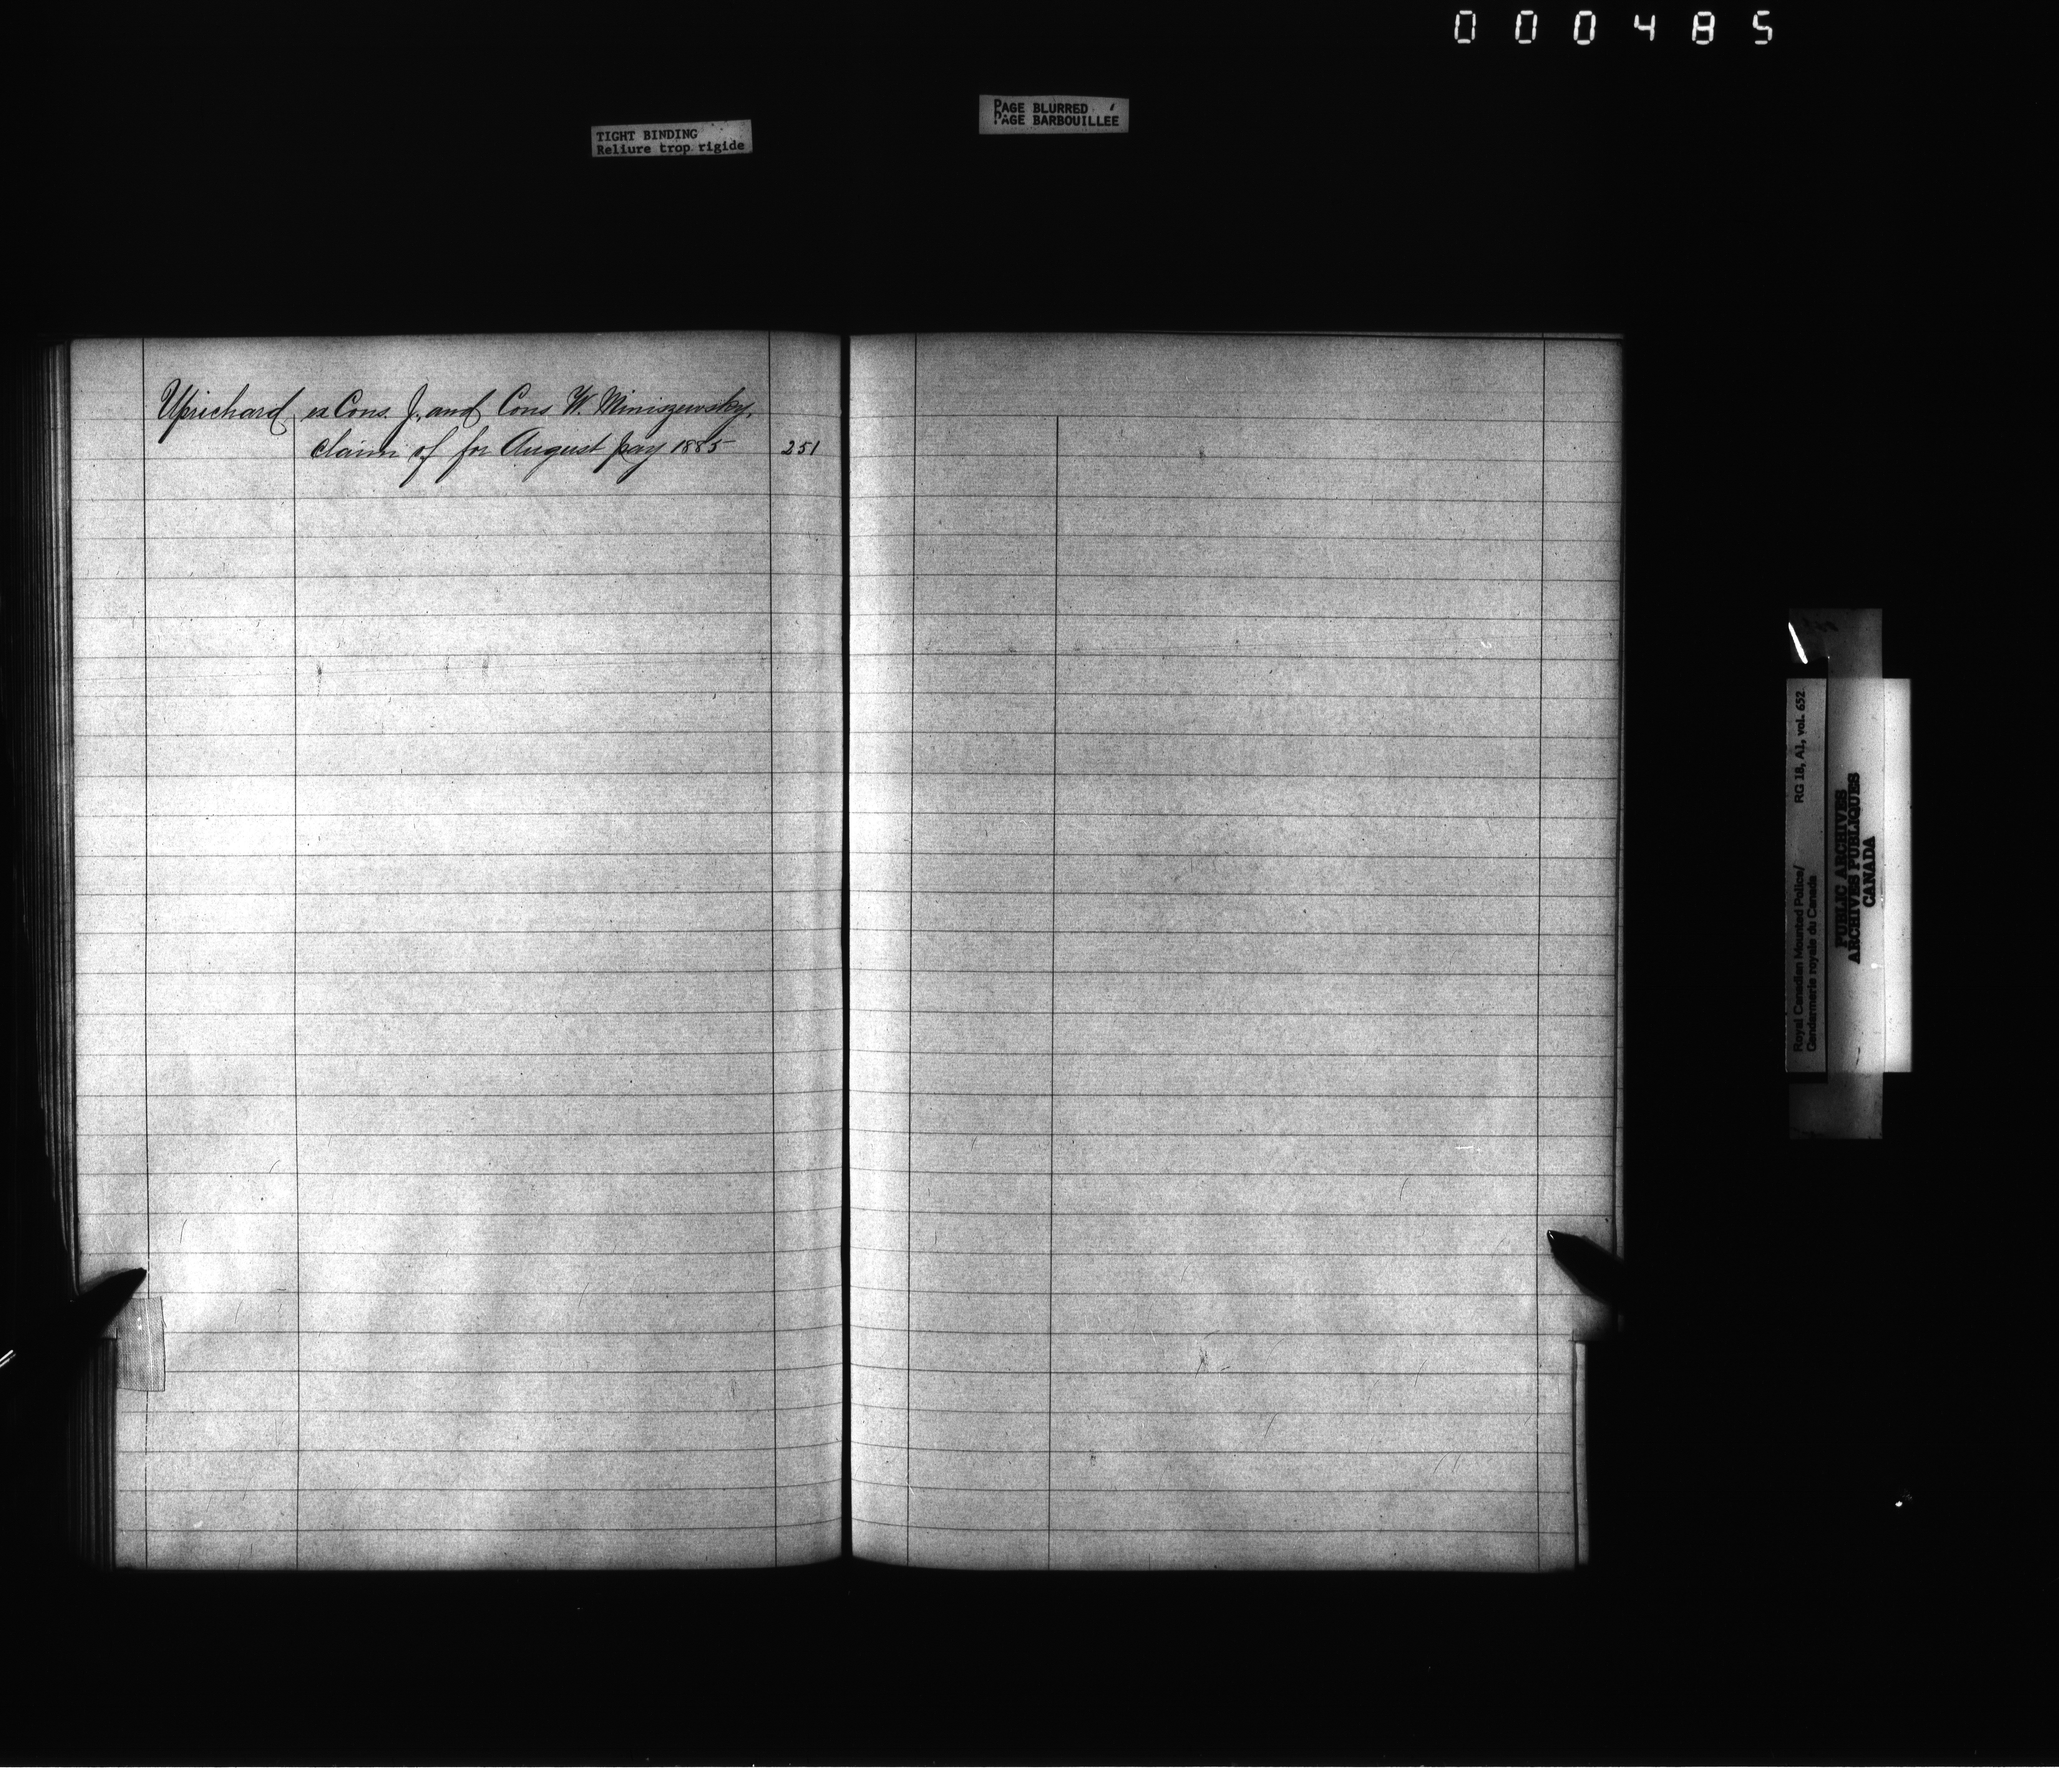 000485
PAGE BLURRED
PAGE BARBOUILLÉE
TIGHT BINDING
Reliure trop rigide
Uprichard, ex Cons. J., and Cons W. Miniszewsky,
claim of for August pay 1885 251
RG 18, A1, vol. 652
Royal Canadian Mounted Police/
Gendarmerie royale du Canada
PUBLIC ARCHIVES
ARCHIVES PUBLIQUES
CANADA